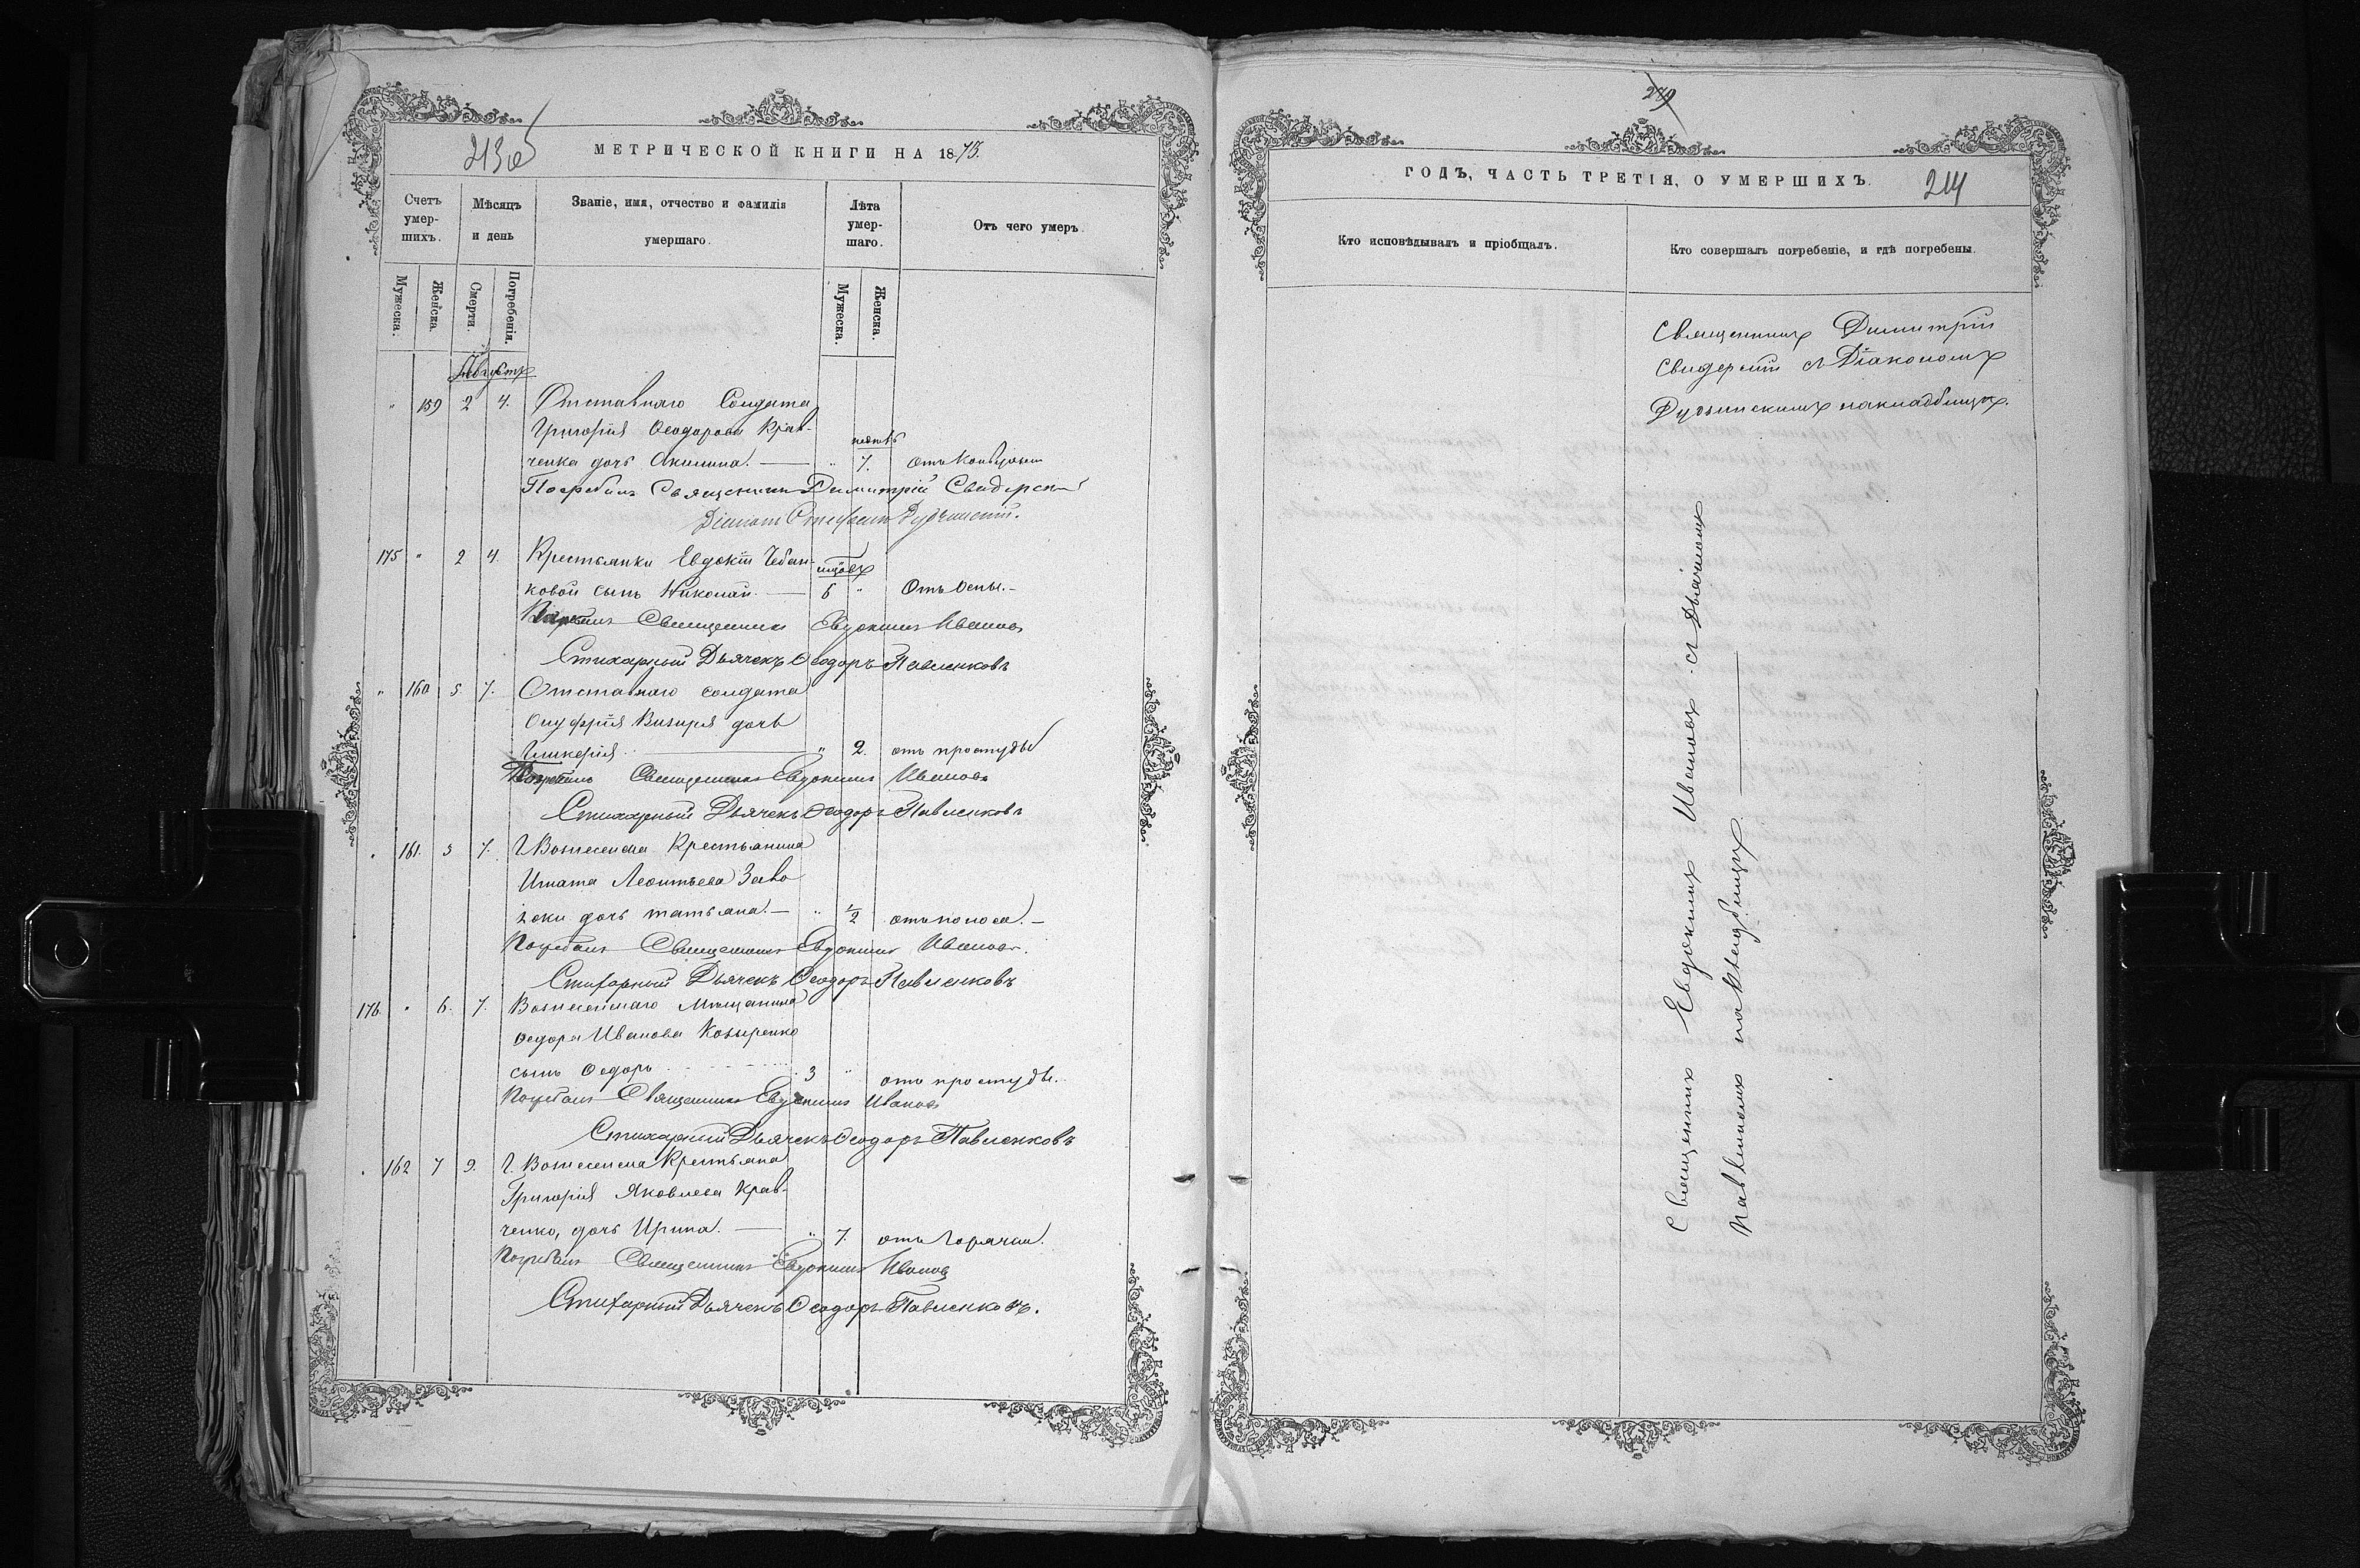 213об
МЕТРИЧЕСКОЙ КНИГИ НА 1873.
Счетъ умер- шихъ.
Мѣсяцъ и день
Званіе, имя, отчество и фамилія умершаго.
Лѣта умер- шаго.
Отъ чего умеръ.
Мужеска.
Женска.
Смерти.
Погребенія.
Мужеска.
Женска.
Августъ
" 159 2 4. Отставнаго Солдата
Григорія Ѳеодорова Крав-
ченка дочь Акилина. — " 7. отъ
Погребалъ Священникъ Димитрій Свидерскій
Діаконъ Стефанъ
175 " 2 4. Крестьянки Евдокіи Чебан-
ковой сынъ Николай. — 6 " Отъ Оспы. -
Священникъ Евдокимъ Ивановъ
Стихарный Дьячекъ Ѳеодоръ Павленковъ
" 160 5 7. Отставнаго солдата
Онуфрія Визиря дочь
Гликерія — " 2. отъ простуды
Погребалъ Священникъ Евдокимъ Ивановъ
Стихарный Дьячекъ Ѳеодоръ Павленковъ
" 161. 5 7. Г. Вознесенска Крестьянина
Игната Леонтьева Заво
дочь татьяна. — " ½ отъ поноса. -
Погребалъ Священникъ Евдокимъ Ивановъ.
Стихарный Дьячекъ Ѳеодоръ Павленковъ
176. " 6. 7. Вознесенскаго Мѣщанина
Ѳедора Иванова Козыренко
сынъ Ѳедоръ 3 " отъ простуды.
Погребалъ Священникъ Евдокимъ Ивановъ
Стихарный Дьячекъ Ѳеодоръ Павленковъ
" 162 7 9. Г. Вознесенска Крестьяна
Григорія Яковлева Крав-
ченко, дочь Ирина. — " 7. отъ Горячки.
Погребалъ Священникъ Евдокимъ Ивановъ
Стихарный Дьячекъ Ѳеодоръ Павленковъ.
279
ГОДЪ, ЧАСТЬ ТРЕТІЯ, О УМЕРШИХЪ.
214
Кто исповѣдывалъ и пріобщалъ.
Кто совершалъ погребеніе, и гдѣ погребены.
Священникъ Димитрій
Свидерскій съ Діакономъ
накладбищѣ.
Священникъ Евдокимъ Ивановъ съ Дьячкомъ
Павленкомъ на Кладбищѣ